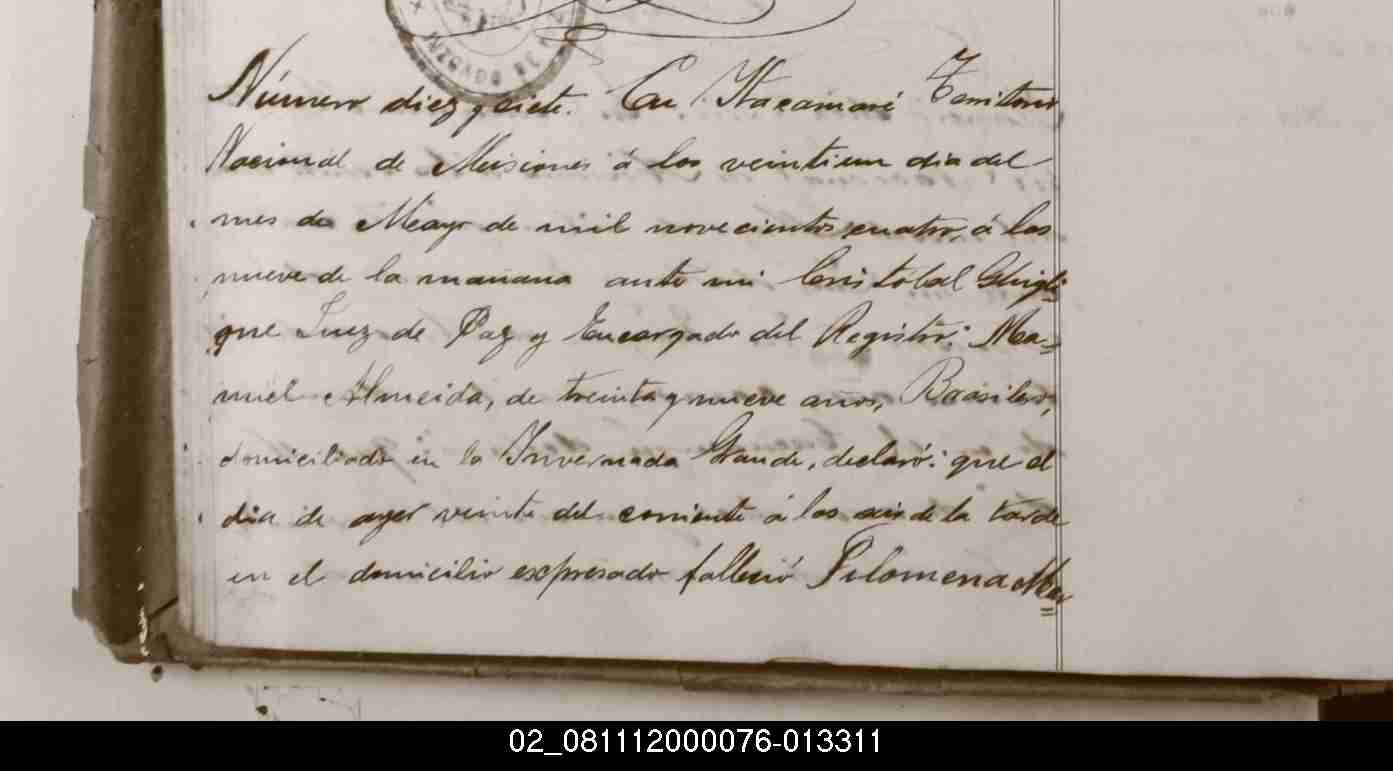 JUZGADO DE
Número diez y siete. En Itacaruaré Territorio
Nacional de Misiones á los veintiun dia del
mes de Mayo de mil novecientos cuatro, á las
nueve de la mañana ante mi Cristobal
que Juez de Paz y Encargado del Registro: Ma-
nuel Almeida, de treinta y nueve años, Brasilero,
domiciliado en la Invernada Grande, declaró: que el
dia de ayer veinte del corriente á las seis de la tarde
en el domicilio expresado falleció Filomena
02_081112000076-013311